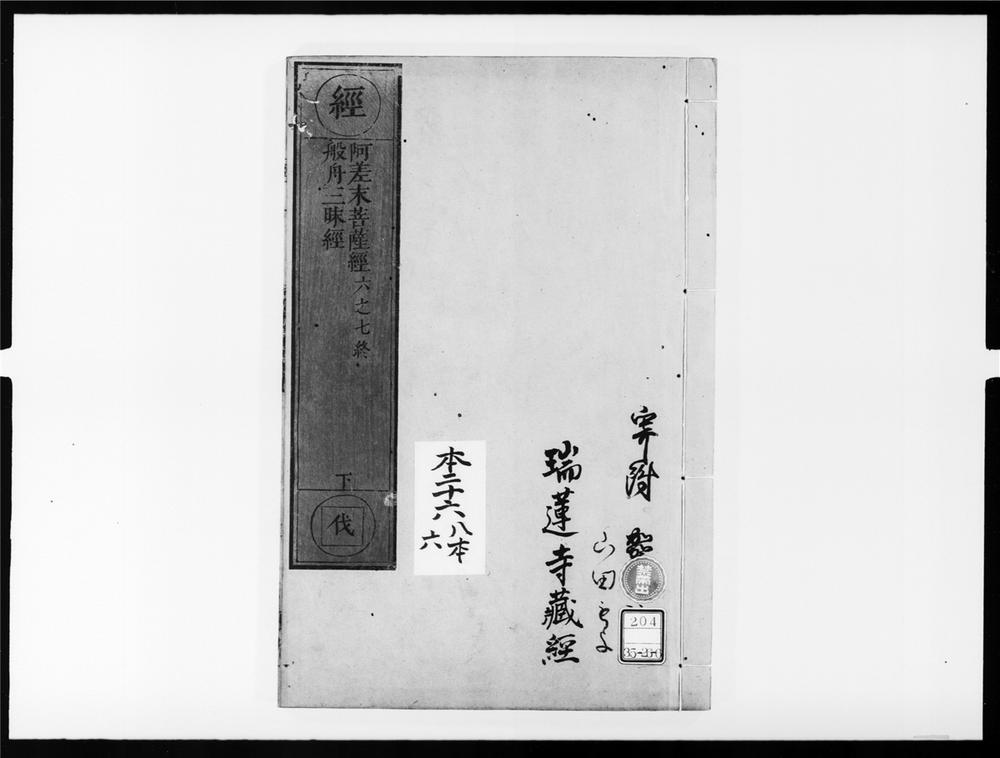 經
阿差末菩薩經六之七終
般舟三昧經
下
伐
本二十六
八本
六
瑞蓮寺藏經
寄附
山田
204
35-26-6